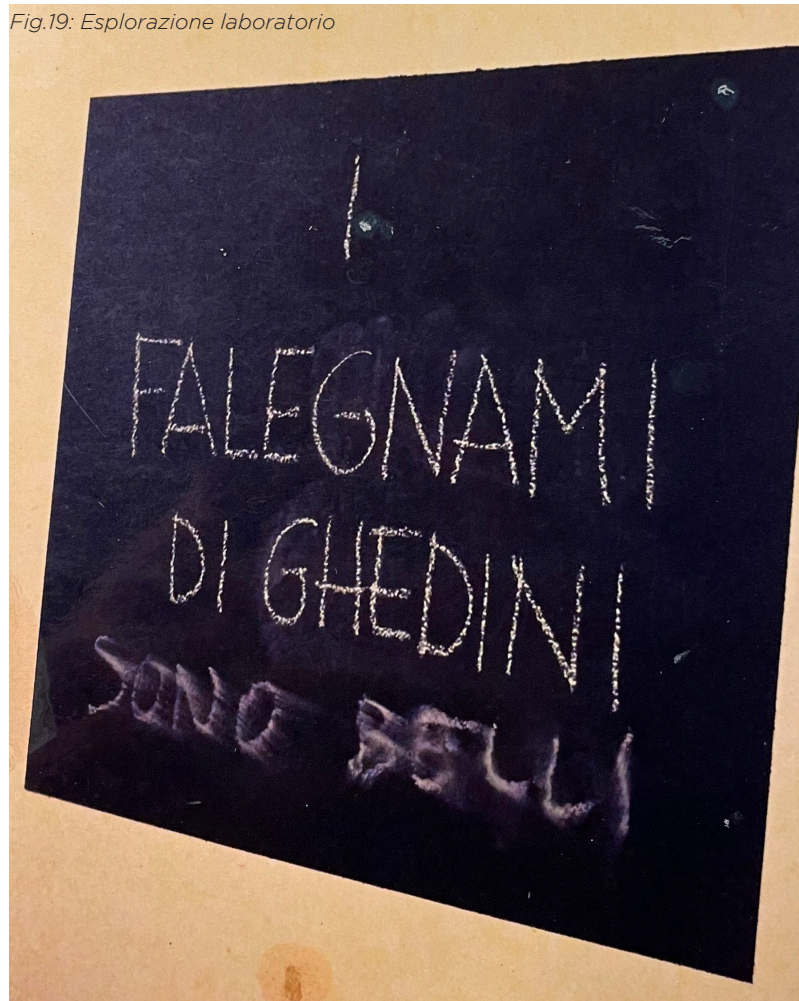 Fig.19: Esplorazione laboratorio
I
FALEGNAMI
DI GHEDINI
SONO BELLI